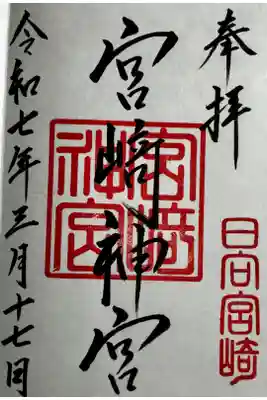 奉拝
日向宮崎
宮﨑神宮
宮崎神宮
令和七年三月十七日